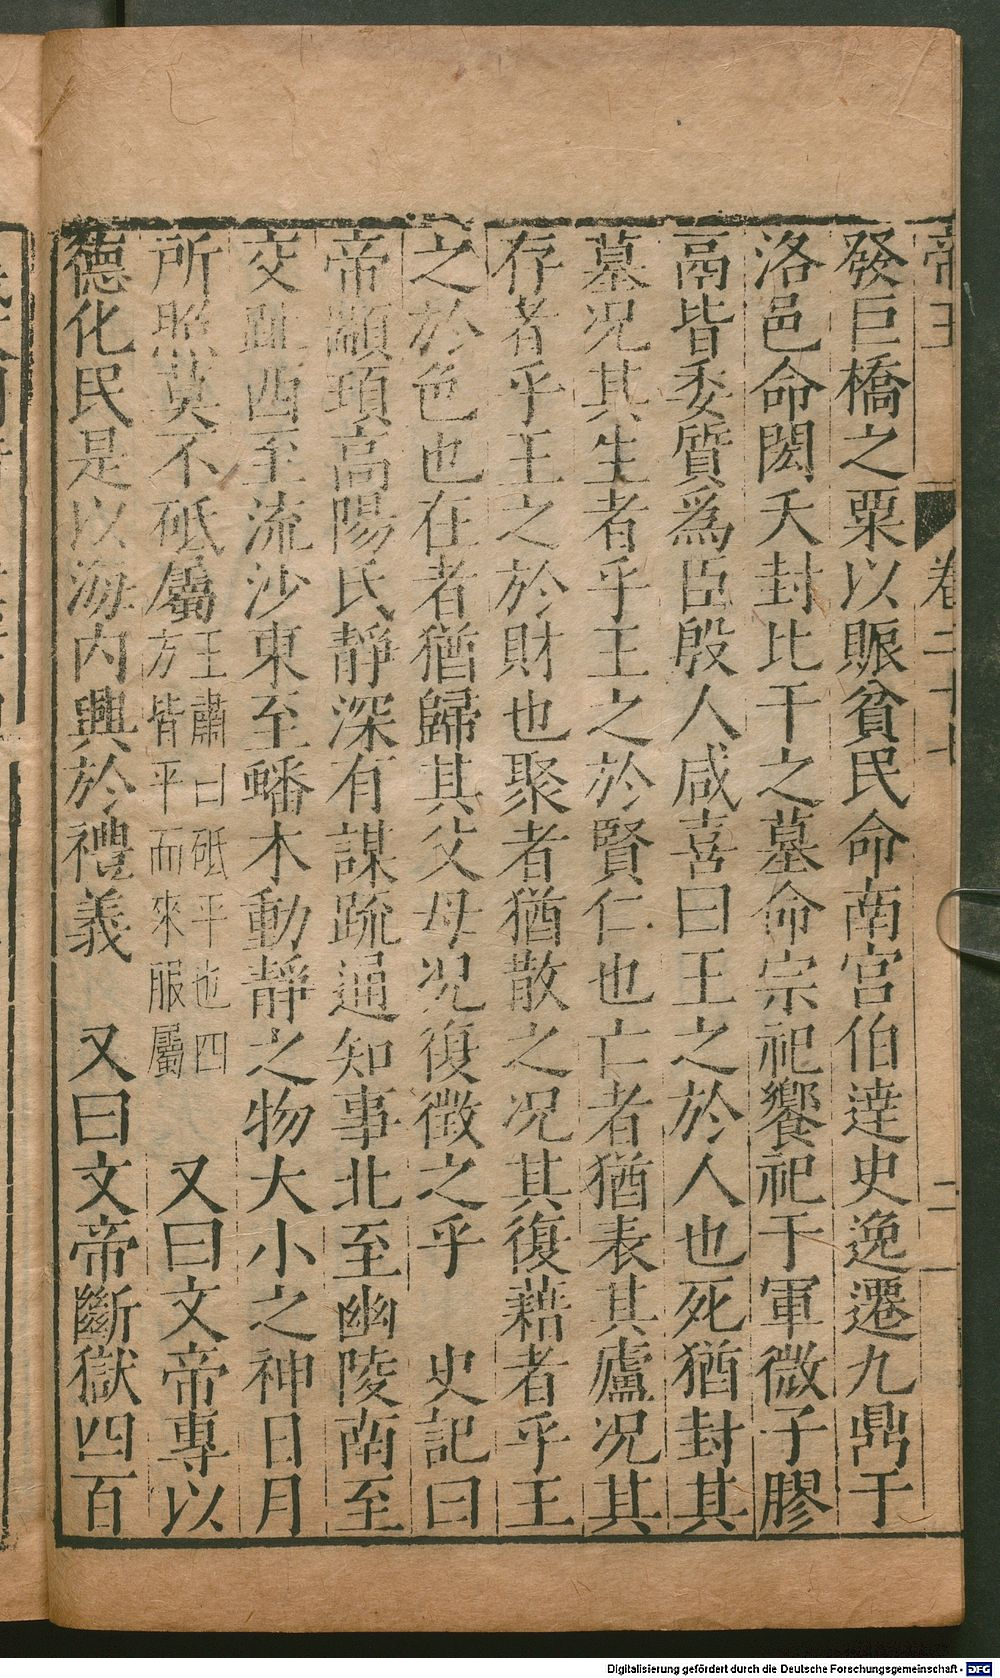 發巨橋之粟以賑貧民命南宮伯達史逸遷九鼎于
洛邑命閎夭封比干之墓命宗祀饗祀于軍微子膠
鬲皆委質爲臣殷人咸喜曰王之於人也死猶封其
墓况其生者乎王之於賢仁也亡者猶表其廬况其
存者乎王之於財也聚者猶散之况其復藉者乎王
之於色也在者猶歸其父母况復徴之乎　史記曰
帝顓頊高陽氏靜深有謀疏通知事北至幽陵南至
交趾西至流沙東至蟠木動靜之物大小之神日月
所照莫不砥屬王肅曰砥平也四方皆平而來服屬　又曰文帝專以
德化民是以海内興於禮義　又曰文帝斷獄四百
帝王　卷二十七　二
Digitalisierung gefördert durch die Deutsche Forschungsgemeinschaft - DFG